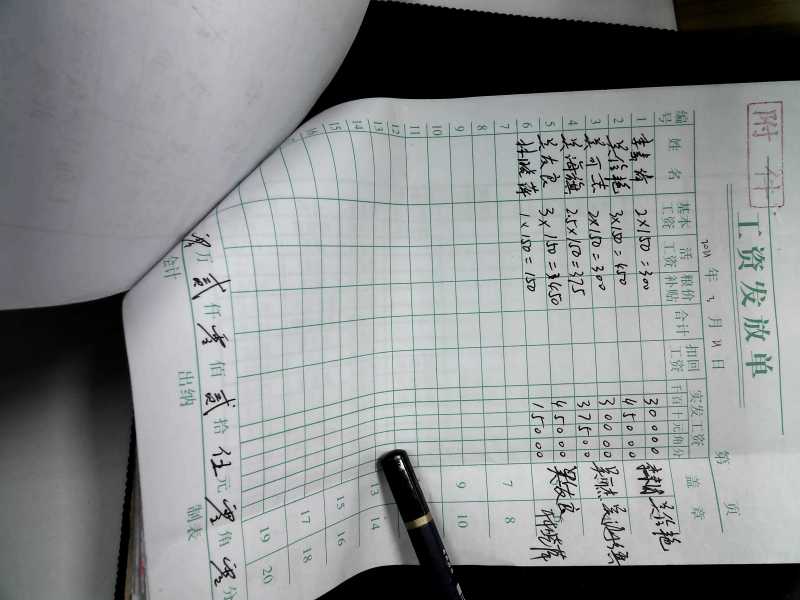 附件
工资发放单
2021年3月21日
第 页
编号 姓名 基本工资 活工资 粮价补贴 合计 扣回工资 实发工资 千百十元角分 盖章
1 2×150=300 30000
2 吴信艳 3×150=450 45000 吴信艳
3 吴可杰 2×150=300 30000 吴可杰
4 吴海旗 2.5×150=375 37500
5 吴友良 3×150=450 45000 吴友良
6 杜晓萍 1×150=150 15000 杜晓萍
7 7 8
8
9 9 10
10
11
12
13 13 14
14
15 15 16
16
17 18
19 20
零万贰仟零佰贰拾伍元零角零分
会计 出纳 制表